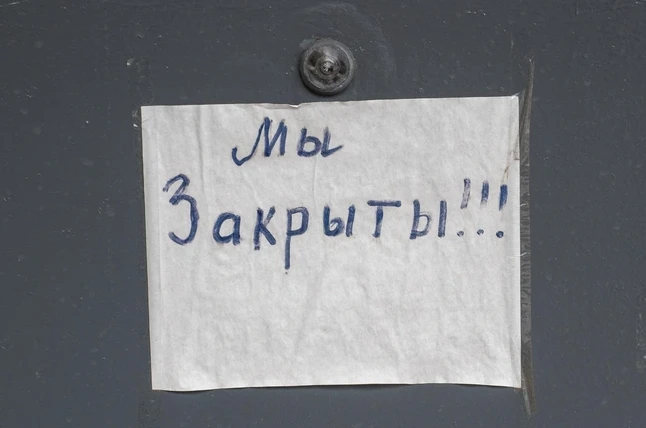 Мы
Закрыты!!!